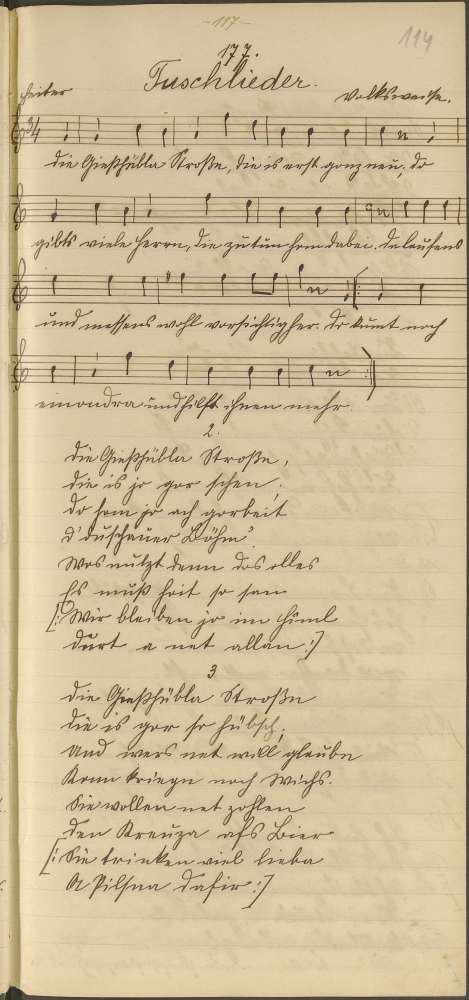 -117-
114
177.
Tuschlieder.
heiter
Volksweise.
3/4
die Gießhübla Stroße, die is erst gonz neu, do
gibts viele Herrn, die zu tun hom dabei. da laufens
und messens wohl vorsichtig her. do kumt noch
ein ondra und hilft ihnen mehr.
2.
die Gießhübla Stroße,
die is jo gor schen,
do hom jo och gorbeit
d' duschauer Böhm'.
Wos nutzt denn dos olles
Es muß hoit so san
[: Wir bleiben jo im Himl
durt a net allan :]
3
die Gießhübla Stroßn
die is gor so hübsch,
und wers net will glaubn
Konn kriegn noch Wichs.
Sie wollen net zohlen
den Kreuza afs Bier
[: Sie trinken viel lieba
A Pilsna dafir :]